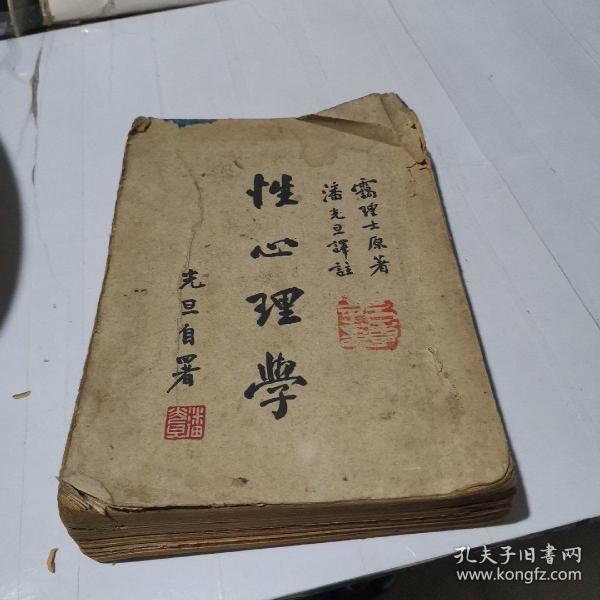 靄理士原著
潘光旦譯註
性心理學
光旦自署
孔夫子旧書网
www.kongfz.com